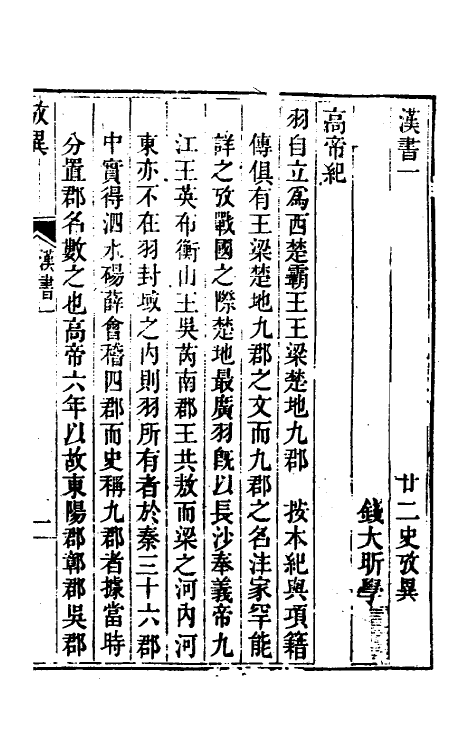 漢書一
廿二史攷異
錢大昕學
高帝紀
羽自立爲西楚霸王王梁楚地九郡 按本紀與項籍
傳俱有王梁楚地九郡之文而九郡之名注家罕能
詳之攷戰國之際楚地最廣羽旣以長沙奉義帝九
江王英布衡山王吳芮南郡王共敖而梁之河內河
東亦不在羽封域之內則羽所有者於秦三十六郡
中實得泗水碭薛會稽四郡而史稱九郡者據當時
分置郡名數之也高帝六年以故東陽郡鄣郡吳郡
攷異
漢書一
一